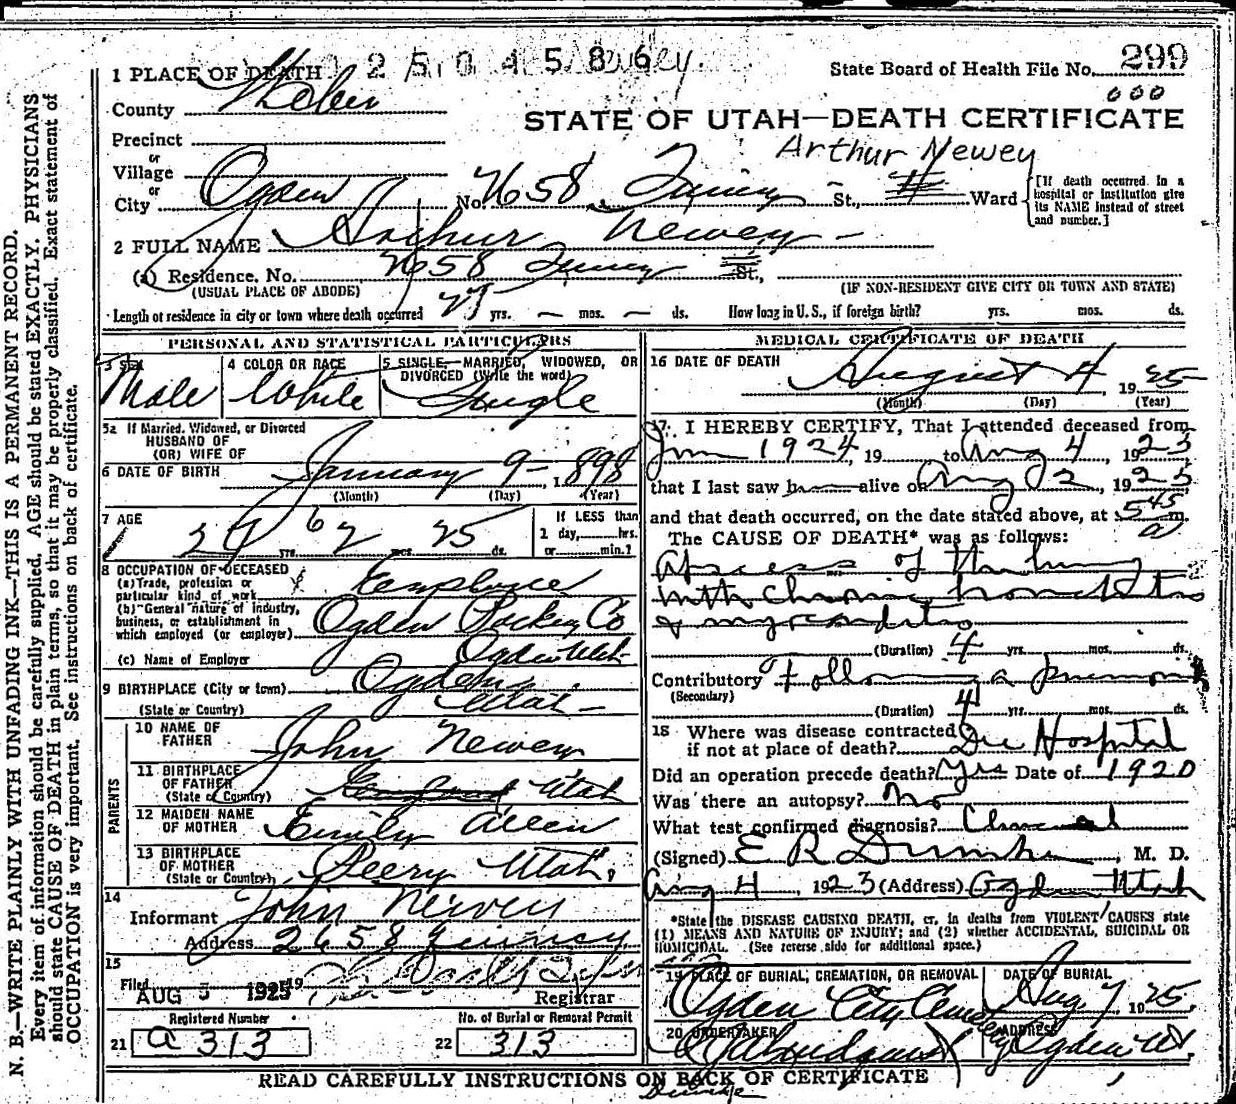 2 5 0 4 5 8 6
1 PLACE OF DEATH
State Board of Health File No. 299
County Weber
000
STATE OF UTAH—DEATH CERTIFICATE
Precinct
Arthur Newey
or
Village
or
City Ogden No. 2658 Quincy St., Ward
[If death occurred in a hospital or institution give its NAME instead of street and number.]
2 FULL NAME Arthur Newey
(a) Residence, No. 2658 Quincy St.,
(USUAL PLACE OF ABODE) (IF NON-RESIDENT GIVE CITY OR TOWN AND STATE)
Length of residence in city or town where death occurred 27 yrs. — mos. — ds. How long in U. S., if foreign birth? yrs. mos. ds.
PERSONAL AND STATISTICAL PARTICULARS
3 Sex Male
4 COLOR OR RACE White
5 SINGLE, MARRIED, WIDOWED, OR DIVORCED (Write the word) Single
5a If Married, Widowed, or Divorced
HUSBAND OF
(OR) WIFE OF
6 DATE OF BIRTH January 9 - 1898
(Month) (Day) (Year)
7 AGE 27 yrs. 6 mos. 25 ds.
If LESS than
1 day, hrs.
or min.?
8 OCCUPATION OF DECEASED
(a) Trade, profession or particular kind of work Employee
(b) General nature of industry, business, or establishment in which employed (or employer) Ogden Packing Co
(c) Name of Employer Ogden Utah
9 BIRTHPLACE (City or town) Ogden
(State or Country) Utah -
PARENTS
10 NAME OF FATHER John Newey
11 BIRTHPLACE OF FATHER (State or Country) England Utah
12 MAIDEN NAME OF MOTHER Emily Allen
13 BIRTHPLACE OF MOTHER (State or Country) Utah.
14
Informant John Newey
Address 2658 Quincy
15
Filed AUG 5 1925 19
Registrar
Registered Number
21 a 313
No. of Burial or Removal Permit
22 313
MEDICAL CERTIFICATE OF DEATH
16 DATE OF DEATH August 4, 1925
(Month) (Day) (Year)
17. I HEREBY CERTIFY, That I attended deceased from
1924, 19 to Aug 4, 1925
that I last saw him alive on Aug 2, 1925
and that death occurred, on the date stated above, at 5 45 a m.
The CAUSE OF DEATH* was as follows:
Abscess of the lung
with chronic bronchitis
& myocarditis
(Duration) 4 yrs. mos. ds.
Contributory Following a pneumonia
(Secondary)
(Duration) 4 yrs. mos. ds.
18 Where was disease contracted
if not at place of death? Dee Hospital
Did an operation precede death? Yes Date of 1920
Was there an autopsy? No
What test confirmed diagnosis? Clinical
(Signed) E R Dumke, M. D.
Aug 4, 1923 (Address) Ogden Utah
*State the DISEASE CAUSING DEATH, or, in deaths from VIOLENT CAUSES state
(1) MEANS AND NATURE OF INJURY; and (2) whether ACCIDENTAL, SUICIDAL OR
HOMICIDAL. (See reverse side for additional space.)
19 PLACE OF BURIAL, CREMATION, OR REMOVAL Ogden City Cemetery
DATE OF BURIAL Aug 7 1925
20 UNDERTAKER
ADDRESS Ogden Ut.
READ CAREFULLY INSTRUCTIONS ON BACK OF CERTIFICATE
Dumke
N. B.—WRITE PLAINLY WITH UNFADING INK—THIS IS A PERMANENT RECORD.
Every item of information should be carefully supplied. AGE should be stated EXACTLY. PHYSICIANS
should state CAUSE OF DEATH in plain terms, so that it may be properly classified. Exact statement of
OCCUPATION is very important. See instructions on back of certificate.